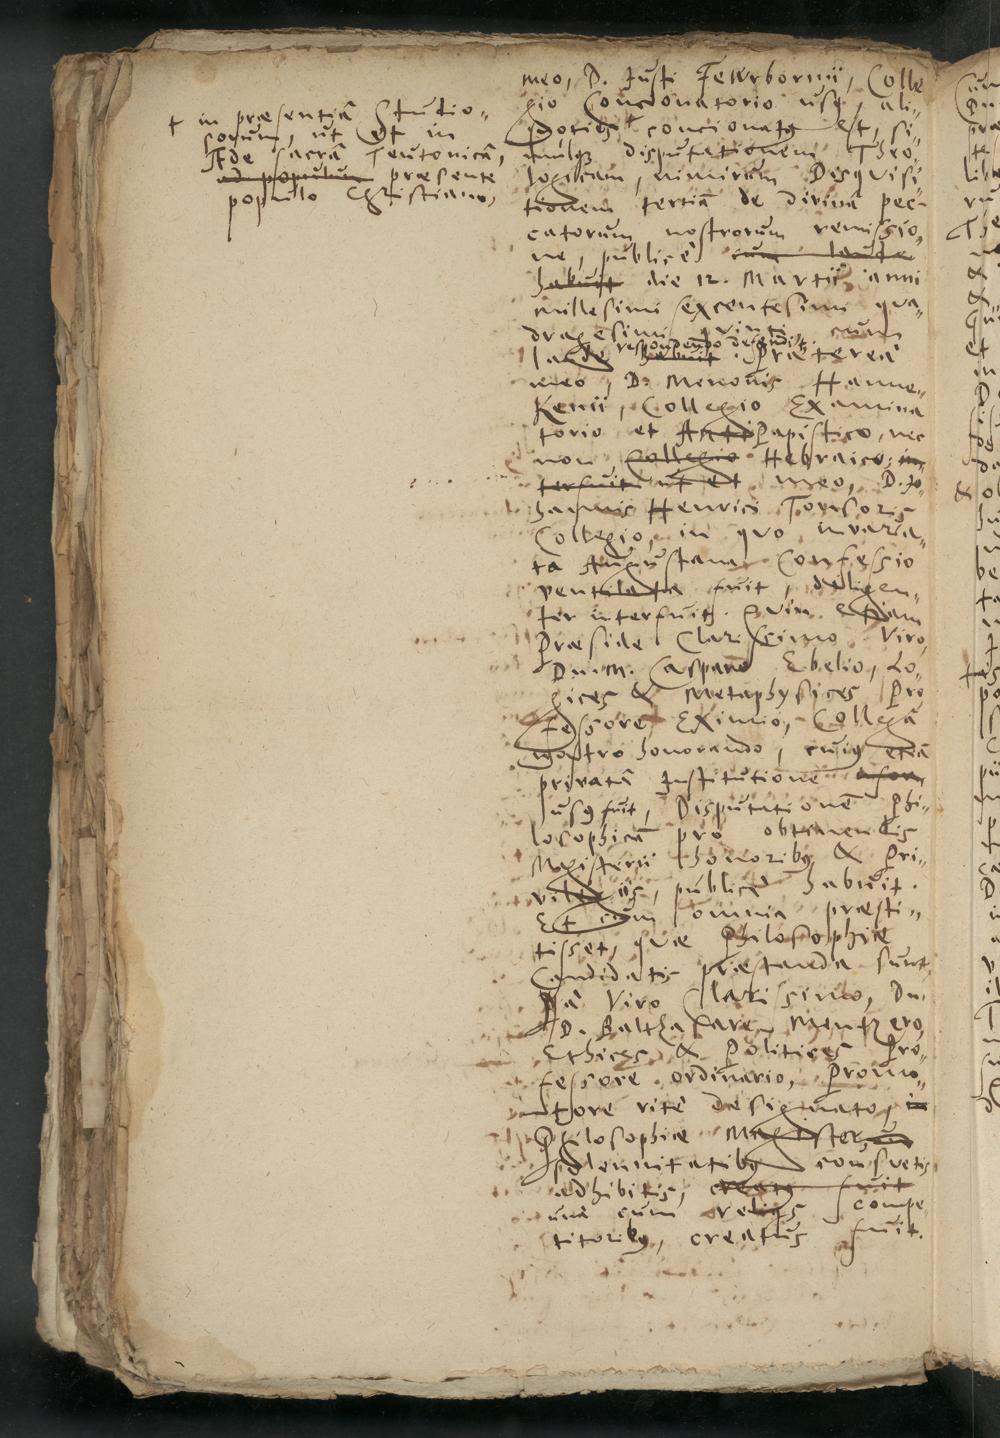 † in præsentiâ Studio-
sorum, ut et in
Æde sacrâ Teutonicâ,
ad populum præsente
populo Christiano,
meo, D. Justi Fewrbornii, Colle
gio Concionatorio usq, ali-
quoties † concionatq est, si-
mulq disputationem Theo-
logicam, nimirum Desquisi-
tionem tertiâ de divinâ pec-
catorum nostrorum remissio-
ne, publicè cum laude
habuit die 12. Martii anni
millesimi sexcentesimi qua-
dragesimi quinti cum
respondendo defendit.
laude habuit. Præterea
meo, D. Menonis Hanne-
Kenii, Collegio Examina
torio et AntiPapistico, nec
non Collegio Hebraico, in-
terfuit ut et meo, D. Jo-
hannis Henrici Tonsoris
Collegio, in quo invaria-
ta Augustana Confessio
ventilata fuit, diligen-
ter interfuit. Quin etiam
Præside Clarissimo Viro,
Dn. M. Casparo Ebelio, Lo-
gices & Metaphysices Pro
fessore Eximio, Collegâ
nostro honorando, cuiq etiâ
privatâ Institutione
usq fuit, Disputationê Phi-
losophicâ pro obtinendis
Magisterii honoribq & Pri-
vilegiis, publicè habuit.
Et cum omnia præsti-
tisset, quæ Philosophiæ
Candidatis præstanda sunt,
à Viro Clarissimo, Dn.
D. Balthasare Mentzero,
Ethices & Politices Pro-
fessore ordinario, Promo-
tore ritè designato, in
Philosophiæ Magister, in
solennitatibq consuetis
adhibitis, creatq fuit
unâ cum reliqs compe
titoribq, creatus fuit.